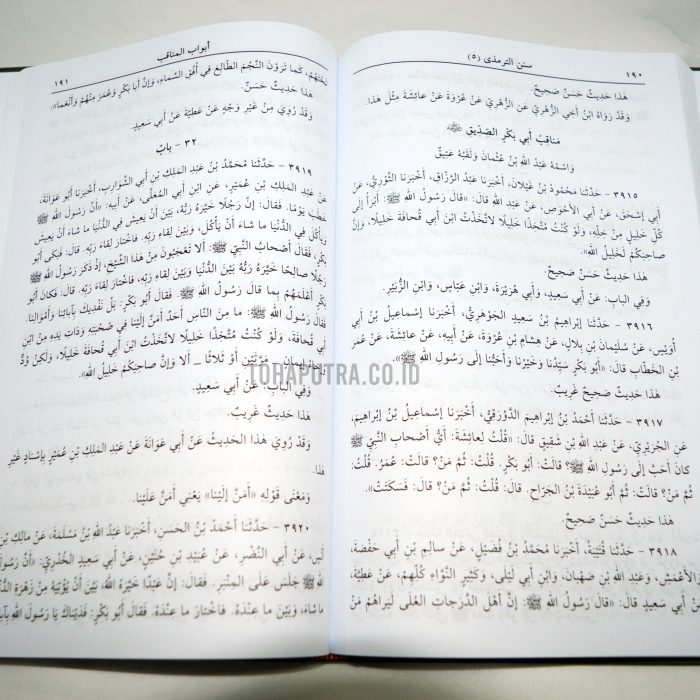 ١٩٠
سنن الترمذى (٥)
هٰذا حَدِيثٌ حَسَنٌ صَحِيحٌ.
وَقَدْ رَوَاهُ ابْنُ أَخِي الزُّهْرِيِّ عَنِ الزُّهْرِيِّ عَنْ عُرْوَةَ عَنْ عائِشَةَ مِثْلَ هٰذا.
مَناقِبُ أَبي بَكْرٍ الصِّدّيقِ ﷺ
وَاسْمُهُ عَبْدُ اللهِ بْنُ عُثْمَانَ وَلَقَبُهُ عَتِيقٌ
٣٩١٥ - حَدَّثَنَا مَحْمُودُ بْنُ غَيْلَانَ، أَخْبَرَنا عَبْدُ الرَّزَّاقِ، أَخْبَرَنا الثَّوْرِيُّ، عَنْ
أَبِي إِسْحَقَ، عَنْ أَبِي الأَحْوَصِ، عَنْ عَبْدِ اللهِ قَالَ: «قَالَ رَسُولُ اللهِ ﷺ: أَبْرَأُ إِلَى
كُلِّ خَلِيلٍ مِنْ خِلِّهِ، وَلَوْ كُنْتُ مُتَّخِذًا خَلِيلًا لاتَّخَذْتُ ابْنَ أَبي قُحَافَةَ خَلِيلًا، وَإِنَّ
صَاحِبَكُمْ لَخَلِيلُ اللهِ».
هٰذا حَدِيثٌ حَسَنٌ صَحِيحٌ.
وَفِي البابِ: عَنْ أَبِي سَعِيدٍ، وَأَبي هُرَيْرَةَ، وَابْنِ عَبَّاسٍ، وَابْنِ الزُّبَيْرِ.
٣٩١٦ - حَدَّثَنَا إِبْراهِيمُ بْنُ سَعِيدٍ الجَوْهَرِيُّ، أَخْبَرَنا إِسْماعِيلُ بْنُ أَبِي
أُوَيْسٍ، عَنْ سُلَيْمَانَ بْنِ بِلَالٍ، عَنْ هِشامِ بْنِ عُرْوَةَ، عَنْ أَبِيهِ، عَنْ عائِشَةَ، عَنْ عُمَرَ
بْنِ الخَطَّابِ قَالَ: «أَبُو بَكْرٍ سَيِّدُنَا وَخَيْرُنا وَأَحَبُّنا إِلَى رَسُولِ اللهِ ﷺ».
هٰذا حَدِيثٌ صَحِيحٌ غَرِيبٌ.
٣٩١٧ - حَدَّثَنَا أَحْمَدُ بْنُ إِبْراهِيمَ الدَّوْرَقِيُّ، أَخْبَرَنا إِسْماعِيلُ بْنُ إِبْراهِيمَ،
عَنِ الجُرَيْرِيِّ، عَنْ عَبْدِ اللهِ بْنِ شَقِيقٍ قالَ: «قُلْتُ لِعائِشَةَ: أَيُّ أَصْحابِ النَّبِيِّ ﷺ
كانَ أَحَبَّ إِلَى رَسُولِ اللهِ ﷺ؟ قالَتْ: أَبُو بَكْرٍ. قُلْتُ: ثُمَّ مَنْ؟ قالَتْ: عُمَرُ. قُلْتُ:
ثُمَّ مَنْ؟ قالَتْ: ثُمَّ أَبُو عُبَيْدَةَ بْنُ الجَرَّاحِ. قَالَ: قُلْتُ: ثُمَّ مَنْ؟ قَالَ: فَسَكَتَتْ».
هٰذا حَدِيثٌ حَسَنٌ صَحِيحٌ.
٣٩١٨ - حَدَّثَنَا قُتَيْبَةُ، أَخْبَرَنا مُحَمَّدُ بْنُ فُضَيْلٍ، عَنْ سالِمِ بْنِ أَبِي حَفْصَةَ،
الأَعْمَشِ، وَعَبْدِ اللهِ بْنِ صَهْبَانَ، وَابْنِ أَبي لَيْلَى، وَكَثِيرٍ النَّوَّاءِ كُلِّهِمْ، عَنْ عَطِيَّةَ،
أَبِي سَعِيدٍ قَالَ: «قَالَ رَسُولُ اللهِ ﷺ: إِنَّ أَهْلَ الدَّرَجاتِ العُلَى لَيَراهُمْ مَنْ
أبواب المناقب
١٩١
تَحْتَهُمْ، كَما تَرَوْنَ النَّجْمَ الطَّالِعَ فِي أُفُقِ السَّمَاءِ، وَإِنَّ أَبا بَكْرٍ وَعُمَرَ مِنْهُمْ وَأَنْعَما».
هٰذا حَدِيثٌ حَسَنٌ.
وَقَدْ رُوِيَ مِنْ غَيْرِ وَجْهٍ عَنْ عَطِيَّةَ عَنْ أَبِي سَعِيدٍ.
٣٢ - بابٌ
٣٩١٩ - حَدَّثَنا مُحَمَّدُ بْنُ عَبْدِ المَلِكِ بْنِ أَبِي الشَّوَارِبِ، أَخْبَرَنا أَبُو عَوَانَةَ،
عَنْ عَبْدِ المَلِكِ بْنِ عُمَيْرٍ، عَنِ ابْنِ أَبِي المُعَلَّى، عَنْ أَبِيهِ: «أَنَّ رَسُولَ اللهِ ﷺ
خَطَبَ يَوْمًا. فَقالَ: إِنَّ رَجُلًا خَيَّرَهُ رَبُّهُ، بَيْنَ أَنْ يَعِيشَ فِي الدُّنْيا ما شَاءَ أَنْ يَعِيشَ
وَيَأْكُلَ فِي الدُّنْيا ما شاءَ أَنْ يَأْكُلَ، وَبَيْنَ لِقَاءِ رَبِّهِ. فَاخْتارَ لِقاءَ رَبِّهِ. قَالَ: فَبَكَى أَبُو
بَكْرٍ، فَقَالَ أَصْحَابُ النَّبِيِّ ﷺ: أَلا تَعْجَبُونَ مِنْ هٰذا الشَّيْخِ، إِذْ ذَكَرَ رَسُولُ اللهِ ﷺ
رَجُلًا صالِحًا خَيَّرَهُ رَبُّهُ بَيْنَ الدُّنْيا وَبَيْنَ لِقَاءِ رَبِّهِ. فاخْتارَ لِقاءَ رَبِّهِ. قالَ: فَكانَ أَبُو
بَكْرٍ أَعْلَمَهُمْ بِما قَالَ رَسُولُ اللهِ ﷺ. فَقَالَ أَبُو بَكْرٍ: بَلْ نَفْدِيكَ بِآبائِنا وَأَمْوَالِنا.
فَقَالَ رَسُولُ اللهِ ﷺ: ما مِنَ النَّاسِ أَحَدٌ أَمَنَّ إِلَيْنا فِي صُحْبَتِهِ وَذاتِ يَدِهِ مِنَ ابْنِ
أَبِي قُحافَةَ، وَلَوْ كُنْتُ مُتَّخِذًا خَلِيلًا لاتَّخَذْتُ ابْنَ أَبي قُحافَةَ خَلِيلًا، وَلَكِنْ وُدٌّ
وَإِخاءُ إِيمانٍ. مَرَّتَيْنِ أَوْ ثَلَاثًا - أَلا وَإِنَّ صاحِبَكُمْ خَلِيلُ اللهِ».
وَفِي البابِ عَنْ أَبِي سَعِيدٍ.
هٰذا حَدِيثٌ غَرِيبٌ.
وَقَدْ رُوِيَ هٰذا الحَدِيثُ عَنْ أَبي عَوَانَةَ عَنْ عَبْدِ المَلِكِ بْنِ عُمَيْرٍ بِإِسْنادٍ غَيْرِ
هٰذا.
وَمَعْنَى قَوْلِهِ «أَمَنَّ إِلَيْنا» يَعْنِي أَمَنَّ عَلَيْنا.
٣٩٢٠ - حَدَّثَنا أَحْمَدُ بْنُ الحَسَنِ، أَخْبَرَنا عَبْدُ اللهِ بْنُ مَسْلَمَةَ، عَنْ مالِكِ بْنِ
أَنَسٍ، عَنْ أَبِي النَّضْرِ، عَنْ عُبَيْدِ بْنِ حُنَيْنٍ، عَنْ أَبِي سَعِيدٍ الخُدْرِيِّ: «أَنَّ رَسُولَ
اللهِ ﷺ جَلَسَ عَلَى المِنْبَرِ. فَقَالَ: إِنَّ عَبْدًا خَيَّرَهُ اللهُ، بَيْنَ أَنْ يُؤْتِيَهُ مِنْ زَهْرَةِ الدُّنْيا
ما شاءَ، وَبَيْنَ ما عِنْدَهُ. فَاخْتارَ ما عِنْدَهُ. فَقَالَ أَبُو بَكْرٍ: فَدَيْناكَ يا رَسُولَ اللهِ بِآبائِنا
TOHAPUTRA.CO.ID